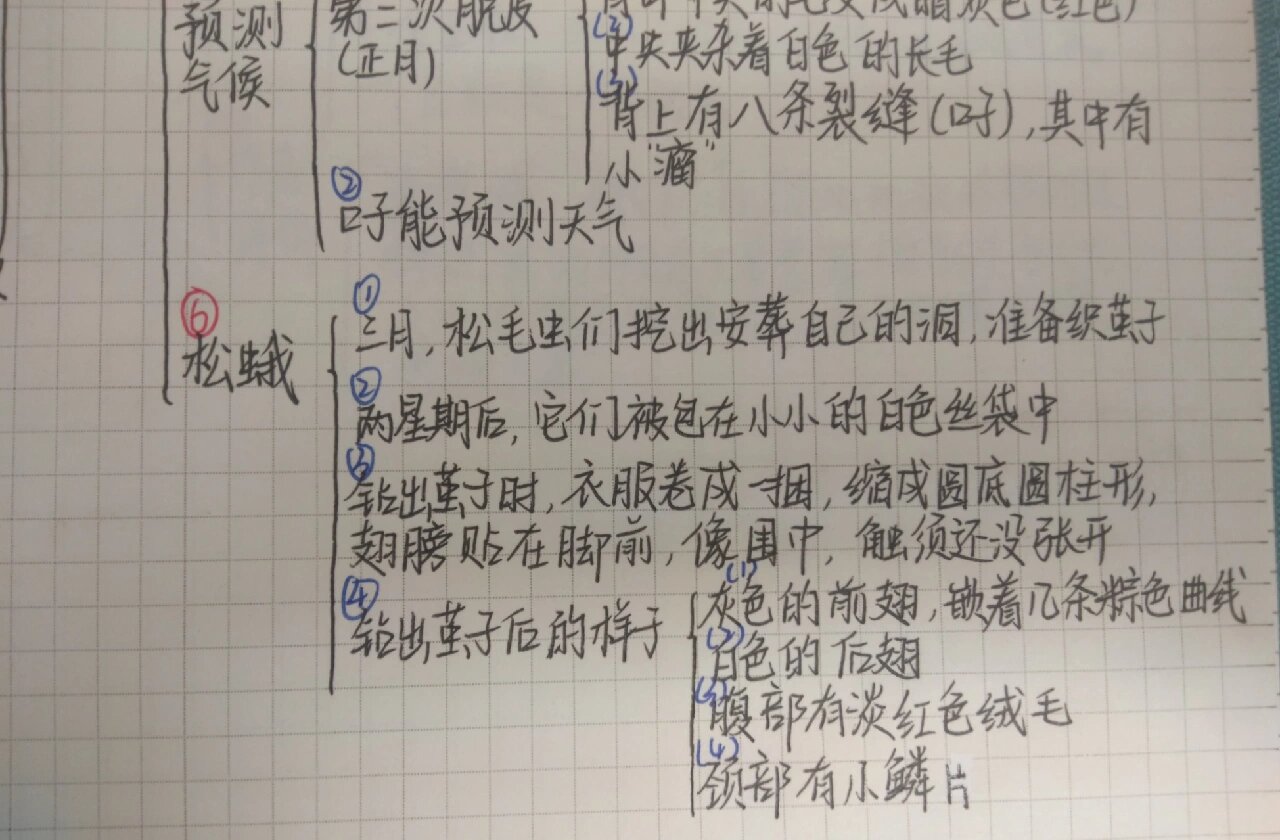 预测
气候
第二次脱皮
(正月)
(2)中央夹杂着白色的长毛
(3)背上有八条裂缝(口子),其中有
小"瘤"
②口子能预测天气
⑥松蛾
①三月,松毛虫们挖出安葬自己的洞,准备织茧子
②两星期后,它们被包在小小的白色丝袋中
③钻出茧子时,衣服卷成一捆,缩成圆底圆柱形,
翅膀贴在脚前,像围巾,触须还没张开
④钻出茧子后的样子
(1)灰色的前翅,嵌着几条棕色曲线
(2)白色的后翅
(3)腹部有淡红色绒毛
(4)颈部有小鳞片